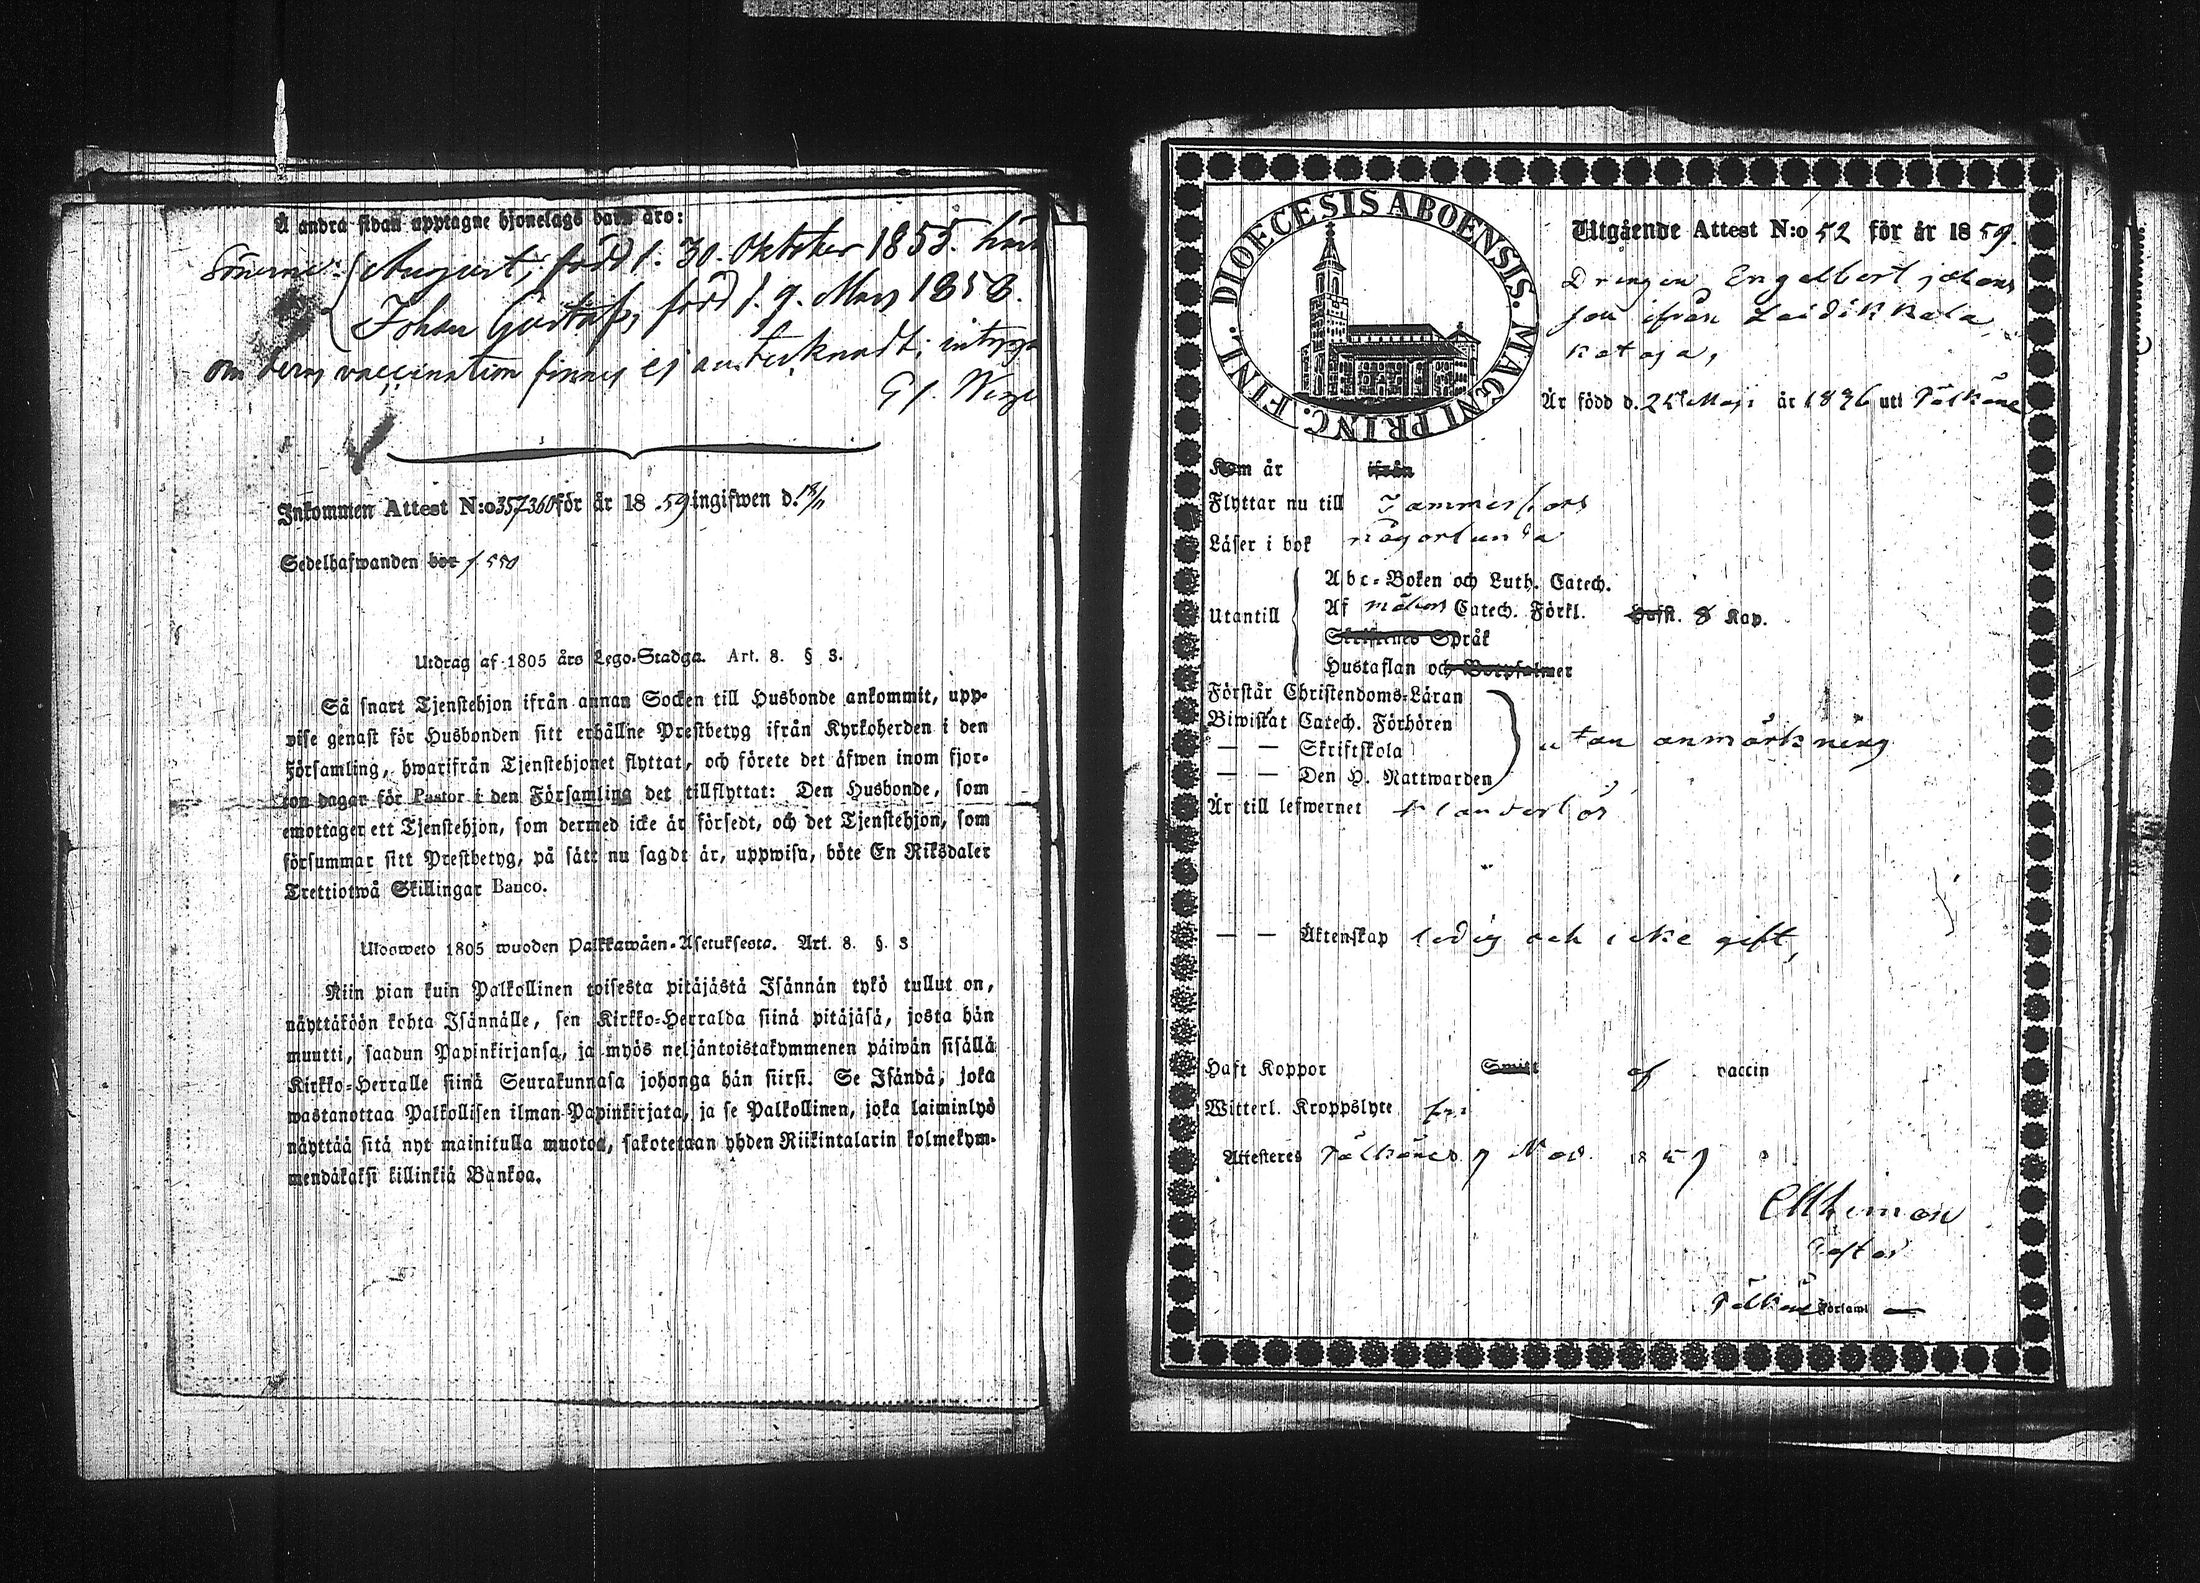 Å andra sidan upptagne hjonelags barn äro:
Sönerne: August, född d. 30. Oktober 1855.
Johan Gustaf, född d. 9. Mars 1858.
om deras vaccination finnes ej antecknadt; intygar
Inkommen Attest N:o 357,360 för år 1859 ingifwen d. 18/11
Sedelhafwanden bor f. 550
Utdrag af 1805 års Lego-Stadga. Art. 8. § 3.
Så snart Tjenstehjon ifrån annan Socken till Husbonde ankommit, upp-
vise genast för Husbonden sitt erhållne Prestbetyg ifrån Kyrkoherden i den
Församling, hwarifrån Tjenstehjonet flyttat, och förete det äfwen inom fjor-
ton dagar för Pastor i den Församling det tillflyttat: Den Husbonde, som
emottager ett Tjenstehjon, som dermed icke är försedt, och det Tjenstehjon, som
försummar sitt Prestbetyg, på sätt nu sagdt är, uppwisa, böte En Riksdaler
Trettiotwå Skillingar Banco.
Ulosweto 1805 wuoden Palkkawäen-Asetuksesta. Art. 8. §. 3
Niin pian kuin Palkollinen toisesta pitäjästä Isännän tykö tullut on,
näyttäköön kohta Isännälle, sen Kirkko-Herralda siinä pitäjäsä, josta hän
muutti, saadun Papinkirjansa, ja myös neljäntoistakymmenen päiwän sisällä
Kirkko-Herralle siinä Seurakunnasa johonga hän siirsi. Se Isändä, joka
wastanottaa Palkollisen ilman Papinkirjata, ja se Palkollinen, joka laiminlyö
näyttää sitä nyt mainitulla muotoa, sakotetaan yhden Riikintalarin kolmekym-
mendäkaksi killinkiä Bankoa.
DIOECESIS ABOENSIS. MAGNI PRINC. FINL.
Utgående Attest N:o 52 för år 1859.
Drengen Engelbert Johans
son ifrån Laidikkala
Kataja,
Är född d. 25 Maji år 1836 uti Pälkäne
Kom år ifrån
Flyttar nu till Tammerfors
Läser i bok någorlunda
Abc-Boken och Luth. Catech.
Utantill Af Catech. Förkl. Kap.
Skriftenes Språk
Hustaflan och Botpsalmer
Förstår Christendoms-Läran
Biwistat Catech. Förhören
— — Skriftskola utan anmärkning
— — Den H. Nattwarden
Är till lefwernet klanderlös
— — Äktenskap ledig och icke gift,
Haft Koppor Smitt af vaccin
Witterl. Kroppslyte fri
Attesteres Pälkäne d. 7 Nov. 1859
Pastor
Pälkäne Församl